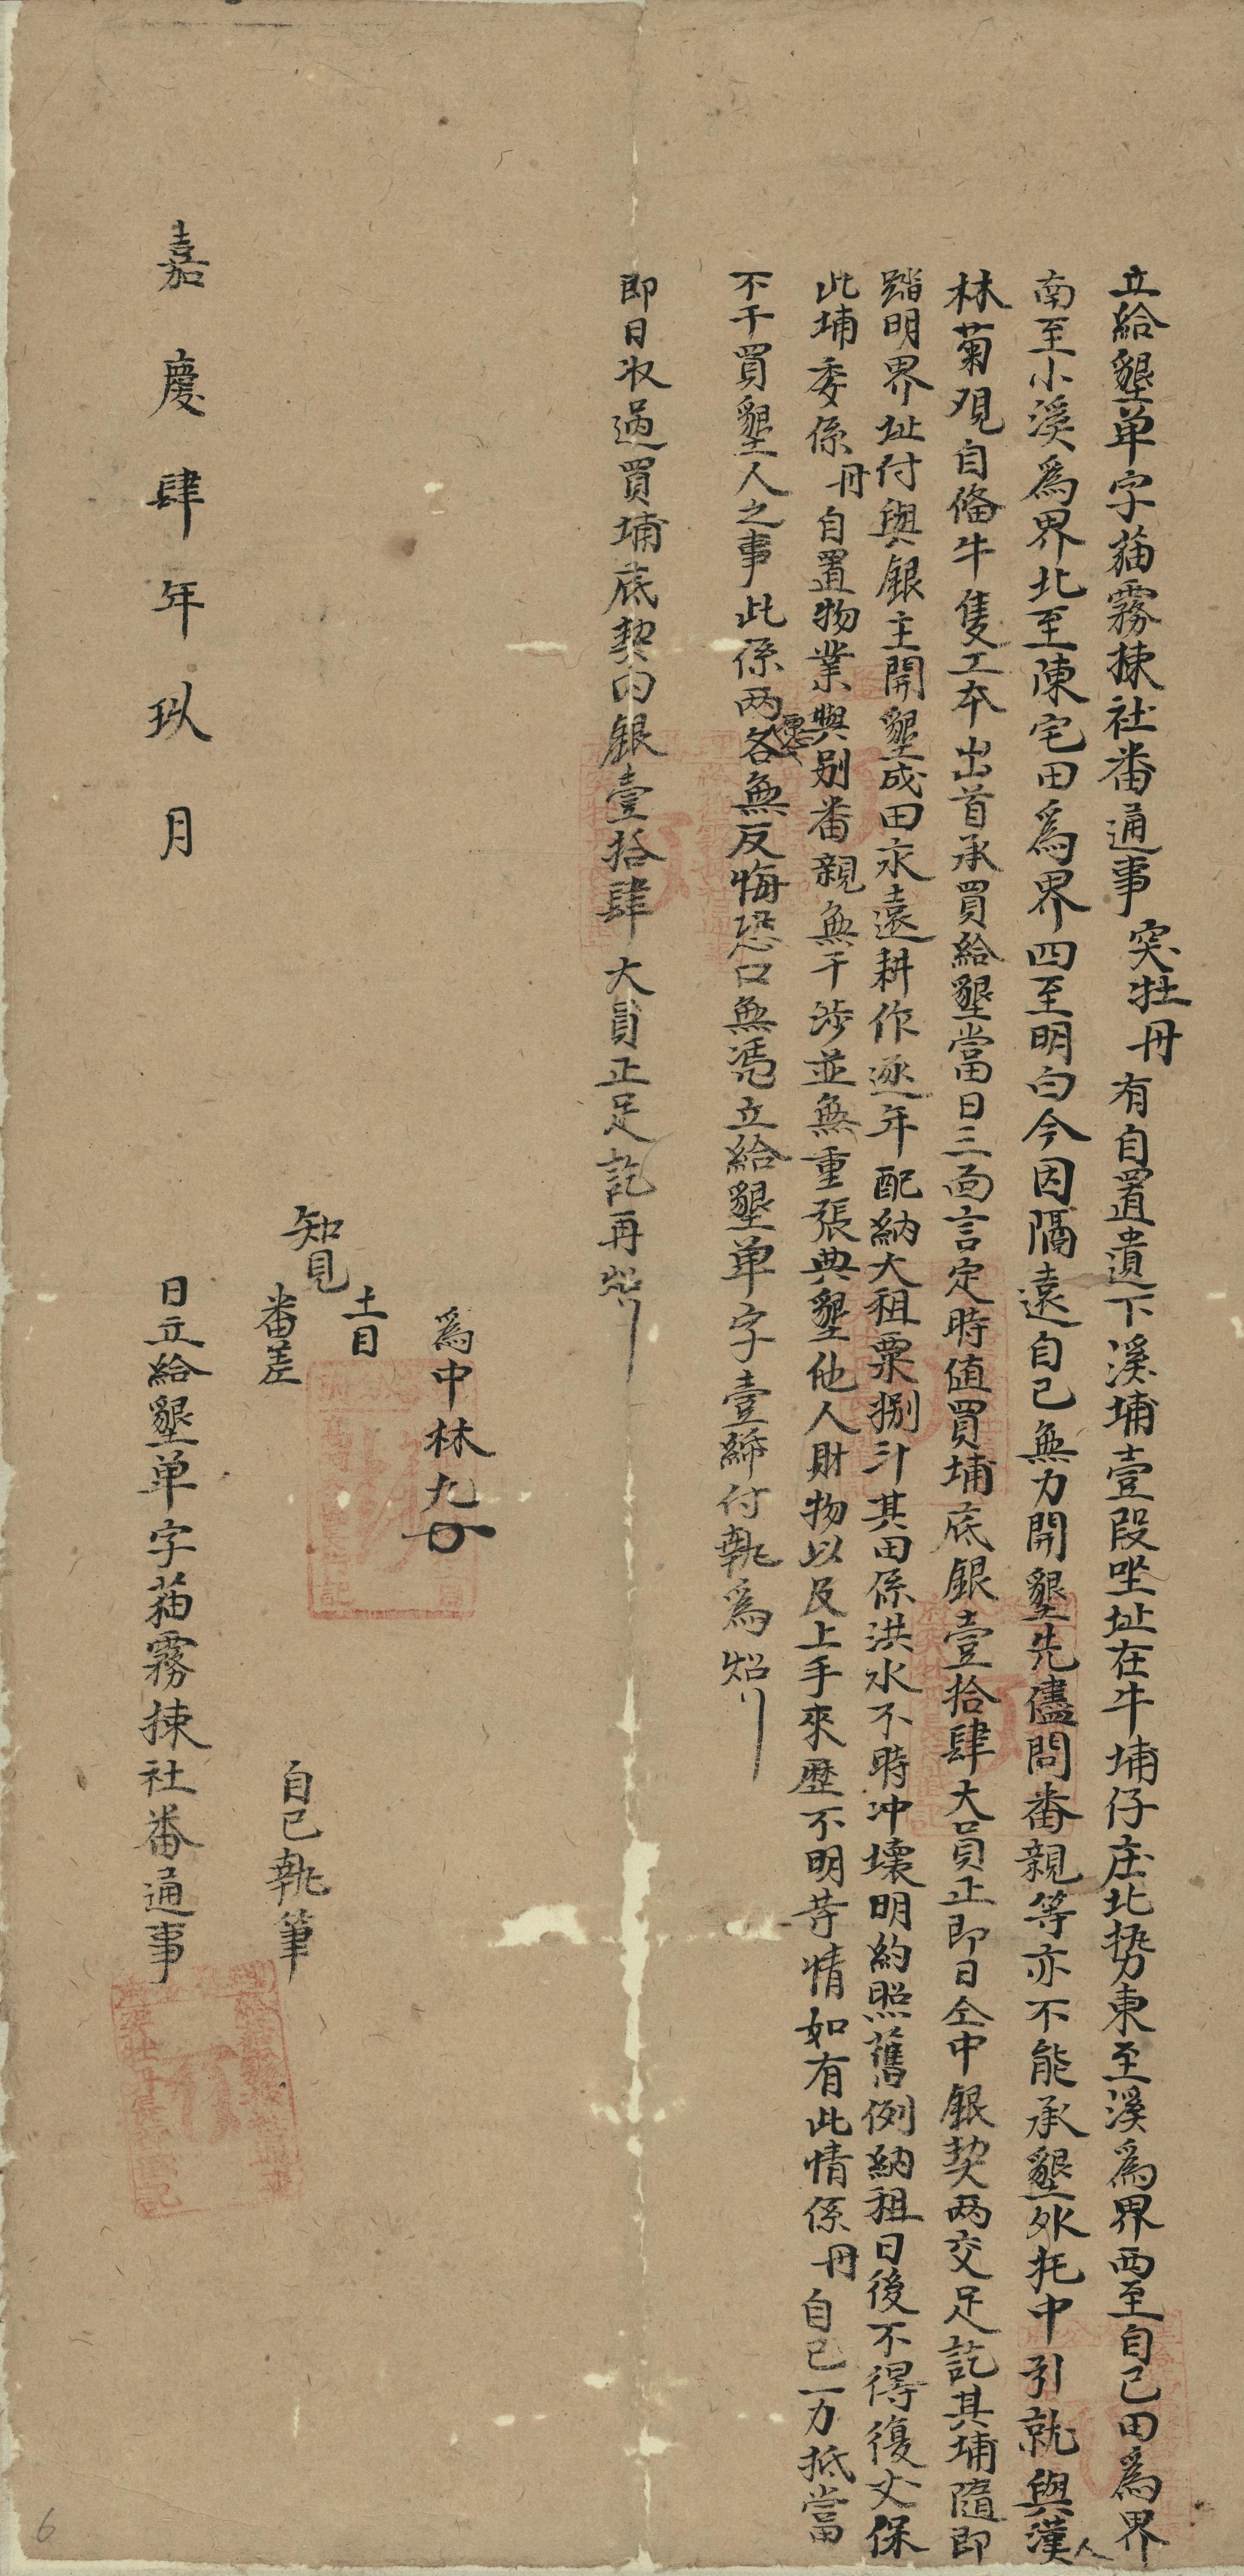 立給墾单字猫霧捒社番通事突牡丹有自置遺下溪埔壹段坐址在牛埔仔庄北势東至溪為界西至自己田為界
南至小溪為界北至陳宅田為界四至明白今因隔遠自己無力開墾先儘問番親等亦不能承墾外托中引就與漢人
林菊观自俻牛隻工夲出首承買給墾當日三面言定時值買埔底銀壹拾肆大員正即日仝中銀契两交足訖其埔隨即
踏明界址付與銀主開墾成田永遠耕作逐年配納大租粟捌斗其田係洪水不時冲壞明約照舊例納租日後不得復丈保
此埔委係丹自置物業與别番親無干涉並無重張典墾他人財物以及上手來歷不明䓁情如有此情係丹自己一力抵當
不干買墾人之事此係两愿各無反悔恐口無凴立給墾单字壹紙付執為炤
即日收過買埔底契内銀壹拾肆大員正足訖再炤
為中林九
土目
知見
番差
自己執筆
嘉慶肆年玖月日立給墾单字猫霧捒社番通事
6